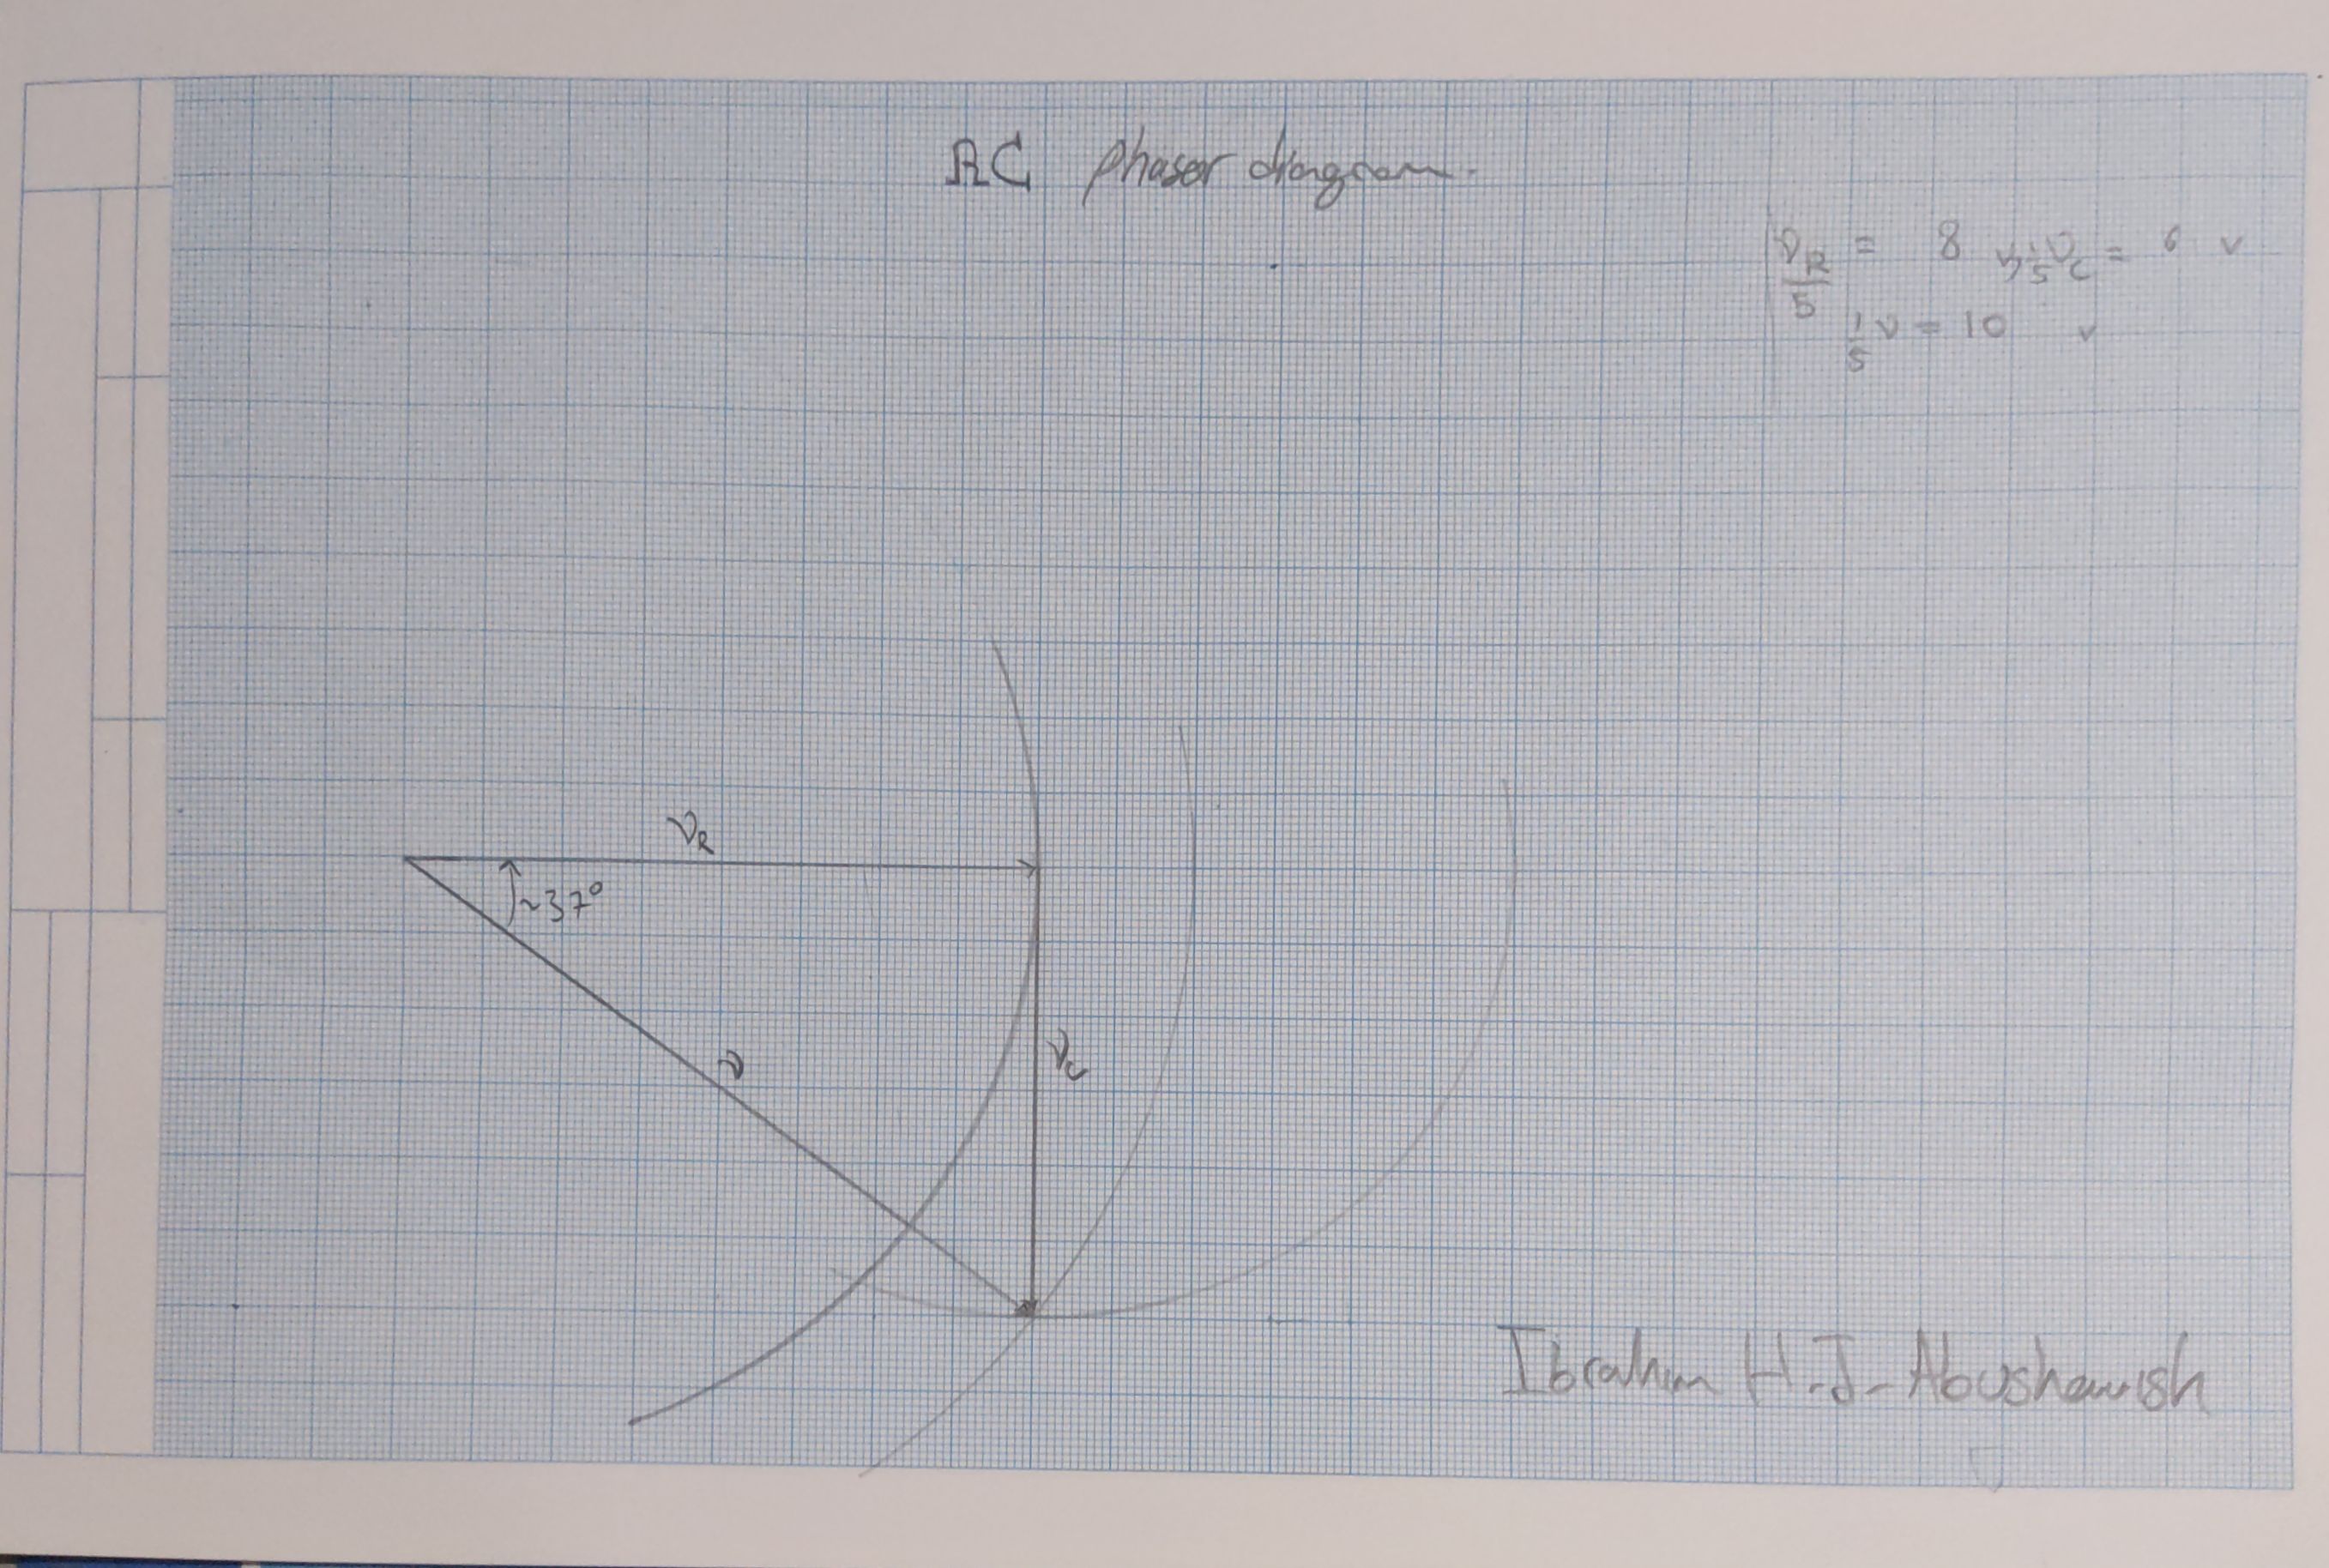 RC phasor diagram.
V_R/5 = 8 v, 1/5 V_C = 6 v
1/5 V = 10 v
V_R
~37°
V
V_C
Ibrahim H.J-Abushawish